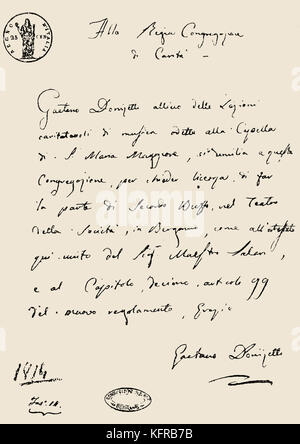 Alla Regia Congregazione
di Carità
Gaetano Donizetti allievo delle Lezioni
caritatevoli di musica dette alla Cappella
di S. Maria Maggiore, si umilia a questa
Congregazione per chieder licenza di far
la parte di Secondo Buffo nel Teatro
della Società, in Bergamo come all'attestato
qui unito del Sig. Maestro Salari,
e al Capitolo, decimo, articolo 99
del nuovo regolamento, Grazie
Gaetano Donizetti
1814
alamy
Image ID: KFRB7B
www.alamy.com